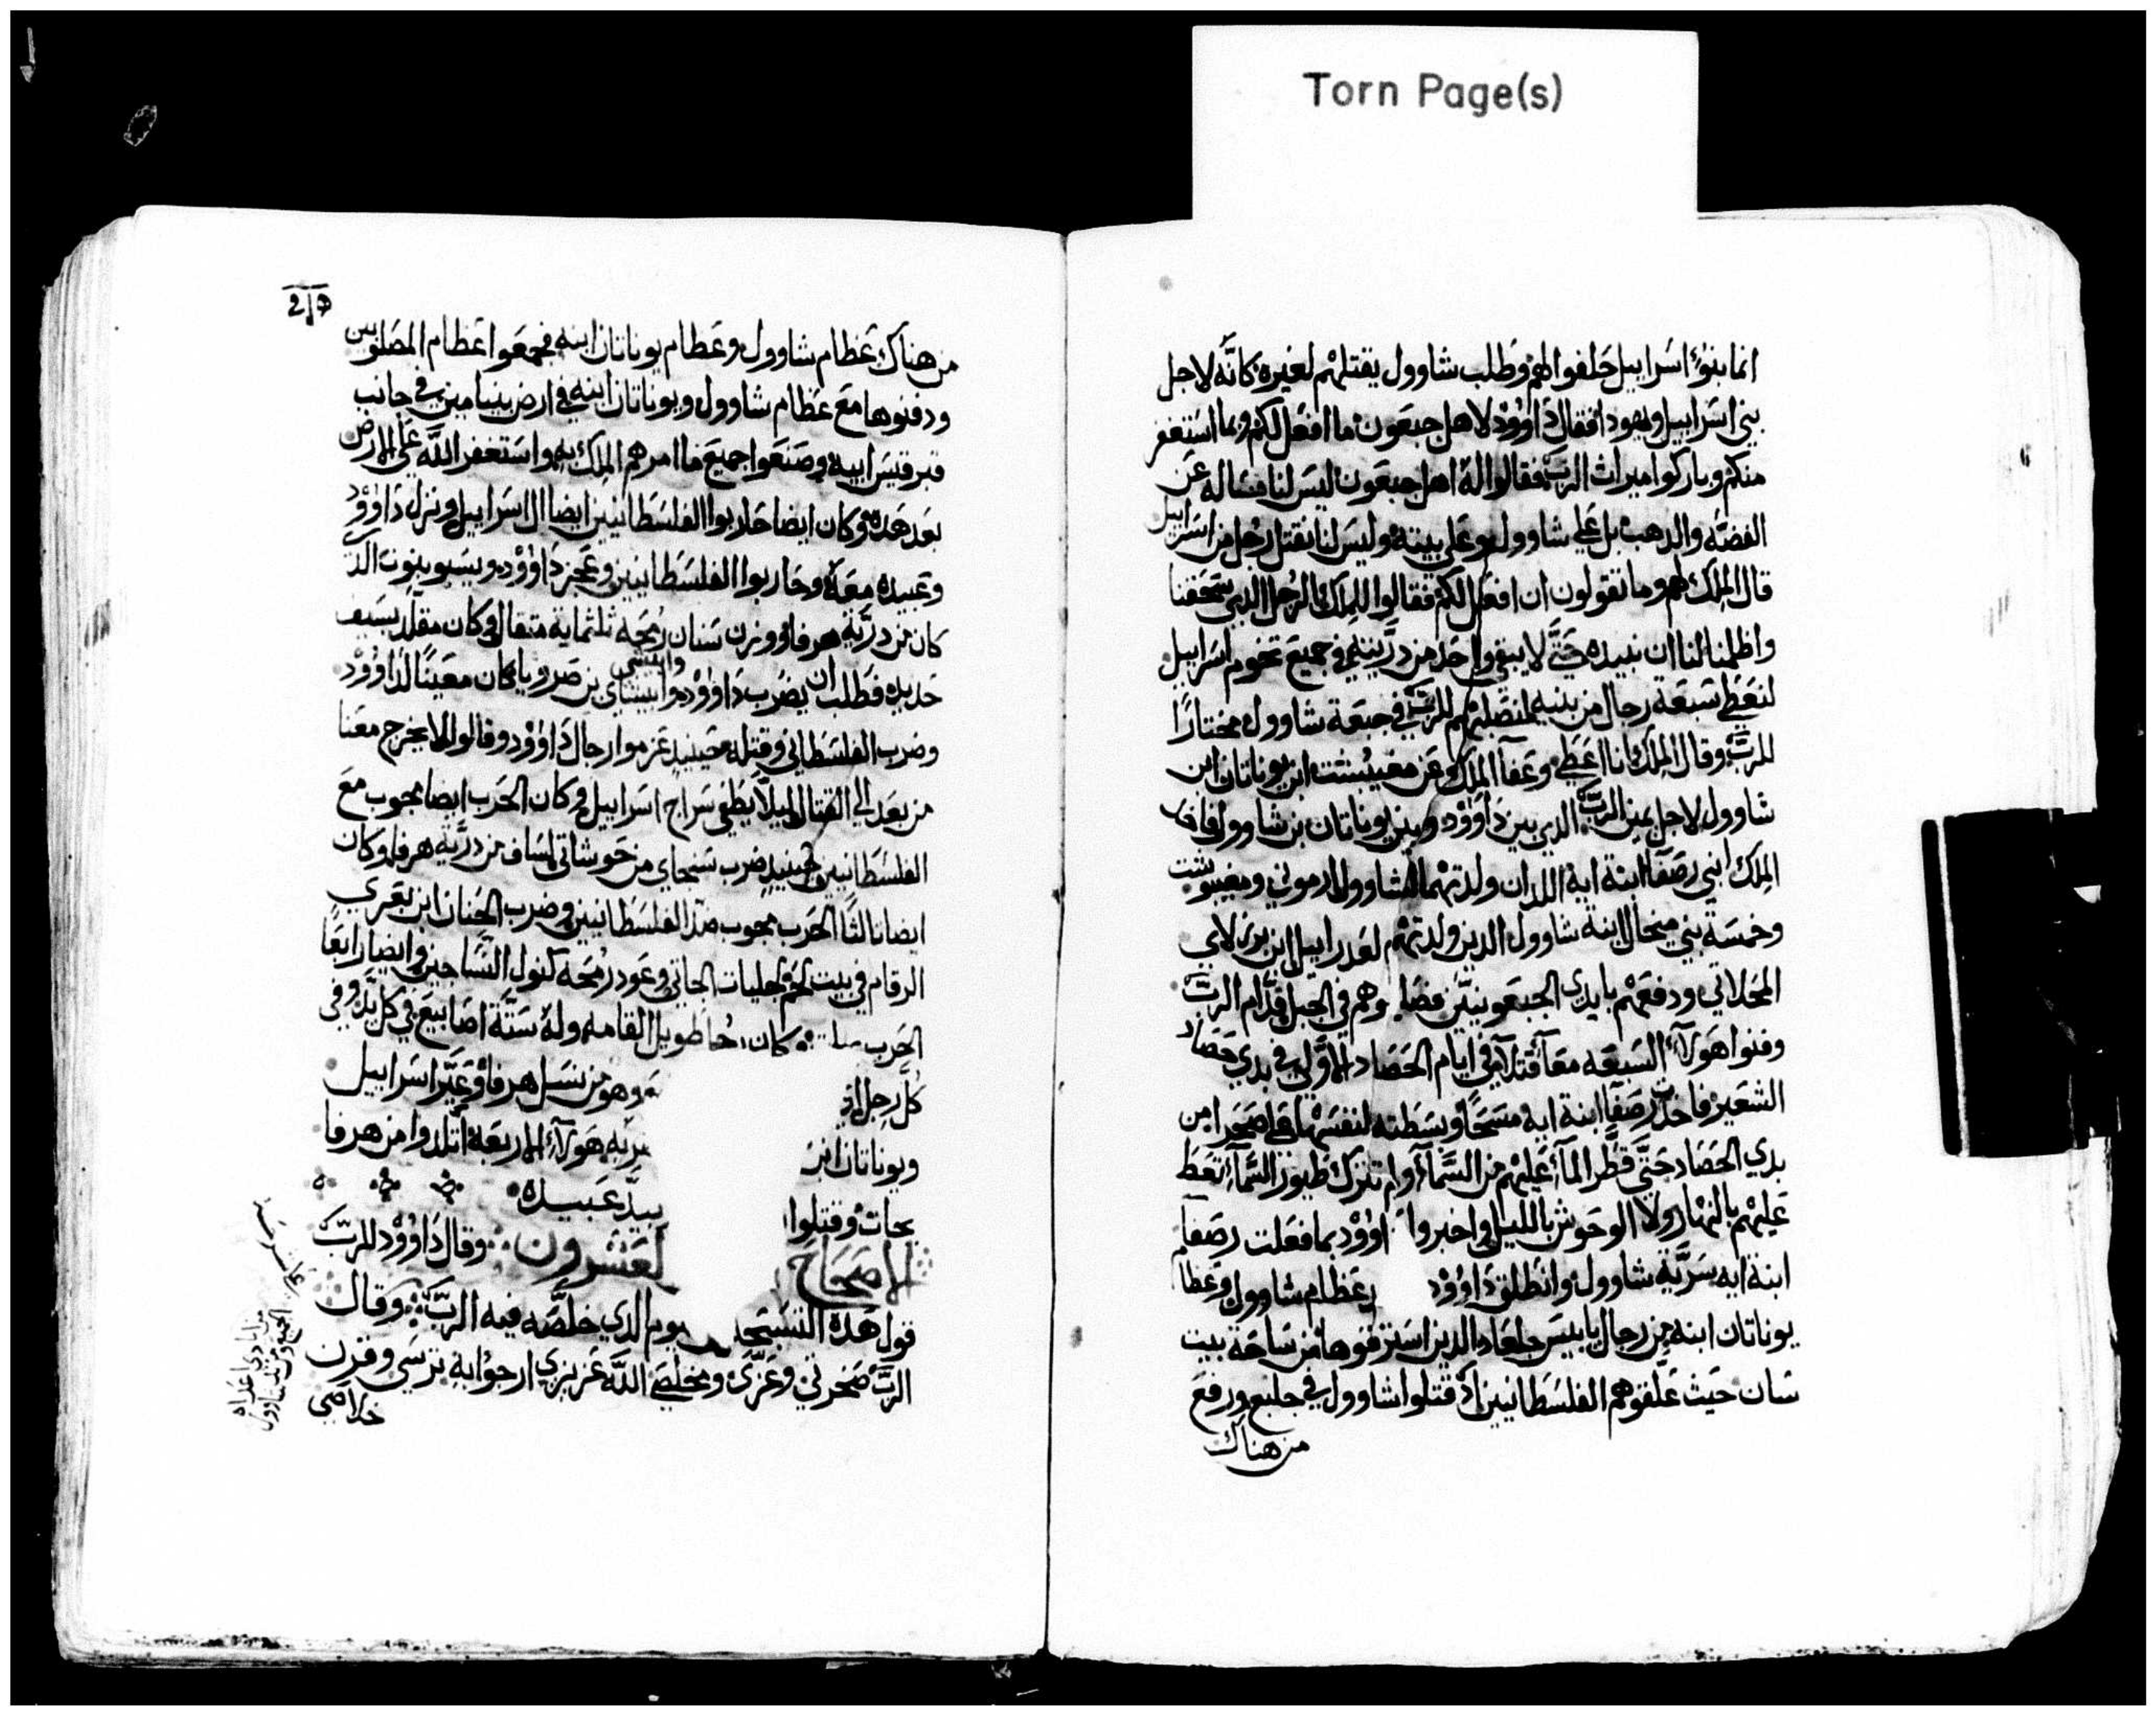 Torn Page(s)
انما بنوا اسراييل حلفوا لهم وطلب شاوول يقتلهم لغيره كانه لاجل
بني اسراييل ويهودا فقال داوود لاهل جبعون ما افعل لكم وبما استغفر
منكم وباركوا ميراث الرب فقالوا له اهل جبعون ليس لنا مساله عن
الفضه والدهب بل على شاوول وعلى بيته وليس لنا نقتل رجل من اسراييل
قال الملك لهم وما تقولون ان افعل لكم فقالوا للملك الرجل الدي سحقنا
واظلمنا لنا ان نبيده حتى لا يبقوا احد من دريته في جميع تخوم اسراييل
لنعطى سبعة رجال من بنيه لنصلبهم للرب في جبعة شاوول مختارا
للرب وقال الملك انا اعطي وعفا الملك عن مفيبشت ابن يوناتان ابن
شاوول لاجل يمين الرب الدي بين داوود وبين يوناتان بن شاوول فاخد
الملك ابني رصفا ابنة ايه اللدان ولدتهما لشاوول ارموني ومفيبوشت
وخمسة بني منحال ابنة شاوول الدين ولدتهم لعدراييل ابن برزلاي
المحلاتي ودفعهم بايدي الجبعونيين فصلبوهم في الجبل قدام الرب
وفنوا هولاء السبعه معا قتلا في ايام الحصاد الاول في بدي حصاد
الشعير فاخدت رصفا ابنة ايه مسحا وبسطته لنفسها على صخرا من
بدي الحصاد حتى قطر الماء عليهم من السماء ولم تترك طيور السماء تحط
عليهم بالنهار ولا الوحوش بالليل واخبروا داوود بما فعلت رصفا
ابنة ايه سرية شاوول وانطلق داوود عظام شاوول وعظام
يوناتان ابنه من رجال يابيس جلعاد الدين استرقوها من ساحة بيت
شان حيث علقوهم الفلسطانيين اد قتلوا شاوول في جلبع ورفع
من هناك
من هناك عظام شاوول وعظام يوناتان ابنه فجمعوا عظام المصلوبين
ودفنوها مع عظام شاوول ويوناتان ابنه في ارض بنيامين في جانب
قبر قيس ابيه وصنعوا جميع ما امرهم الملك به واستغفر الله على الارض
بعد هده وكان ايضا حاربوا الفلسطانيين ايضا ال اسراييل ونزل داوود
وعبيده معه وحاربوا الفلسطانيين وعجز داوود ويسبوبنوب الد
كان من درية هرفا ووزن سنان رمحه ثلثماية متقال وكان مقلد بسيف
حديد فطلب ان يضرب داوود وابيشاي بن صرويا كان معينا لداوود
وضرب الفلسطاني وقتله حينيد عزموا رجال داوود وقالوا لا يخرج معنا
من بعد الي القتال ليلا يطفي سراج اسراييل وكان الحرب ايضا بجوب مع
الفلسطانيين حينيد ضرب سبحاي من حوشاتي لساف من درية هرفا وكان
ايضا ثالثا الحرب بجوب ضد الفلسطانيين وضرب الحنان ابن يعري
الرقام في بيت لحم لجليات الجاتي وعود رمحه كنول النساجين وايضا رابعا
الحرب كان طويل القامه وله ستة اصابيع في كل يد وفي
كل رجل وهو من نسل هرفا وعير اسراييل
ويوناتان ابن هولاء الاربعة اتلدوا من هرفا
بجات وقتلوا بيد عبيده
الاصحاح العشرون وقال داوود للرب
قول هده التسبحه يوم الدي خلصه فيه الرب وقال
الرب صخرتي وعزي ومخلصي الله عزيزي ارجوا به ترسي وقرن
خلاصي